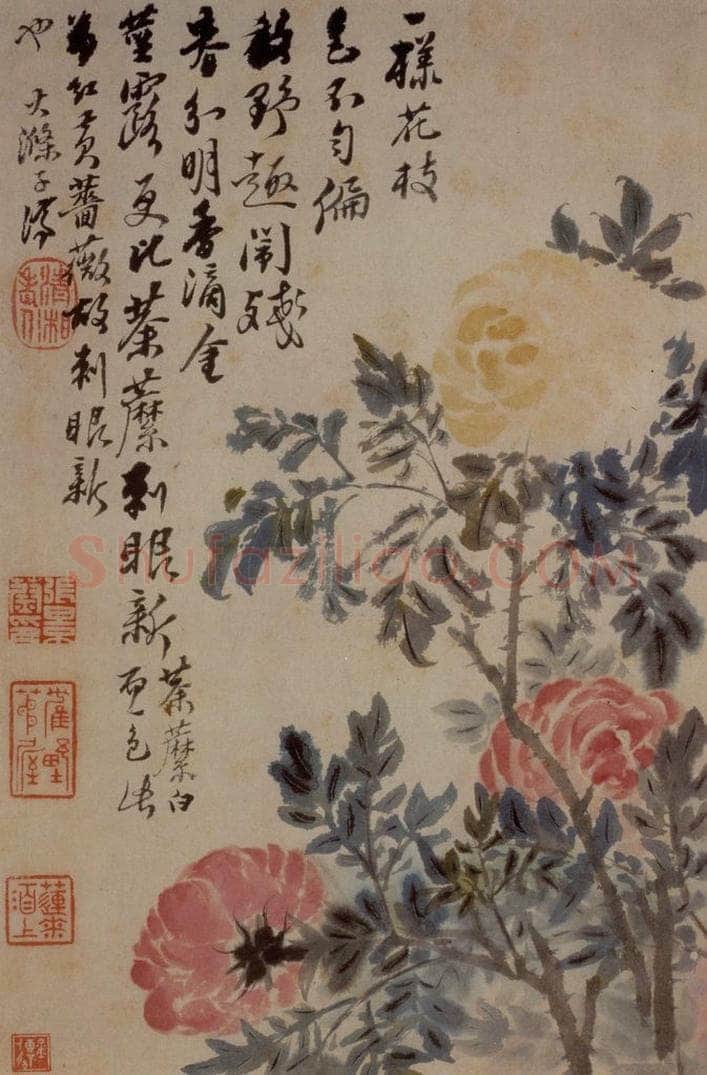 一樣花枝
色不勻偏
教野趣鬧殘
春分明香滴金
莖露更比荼蘼刺眼新
荼蘼白
色
紅黃薔薇故刺眼新
也 大滌子濟
清湘老人
Shufaziliao.COM